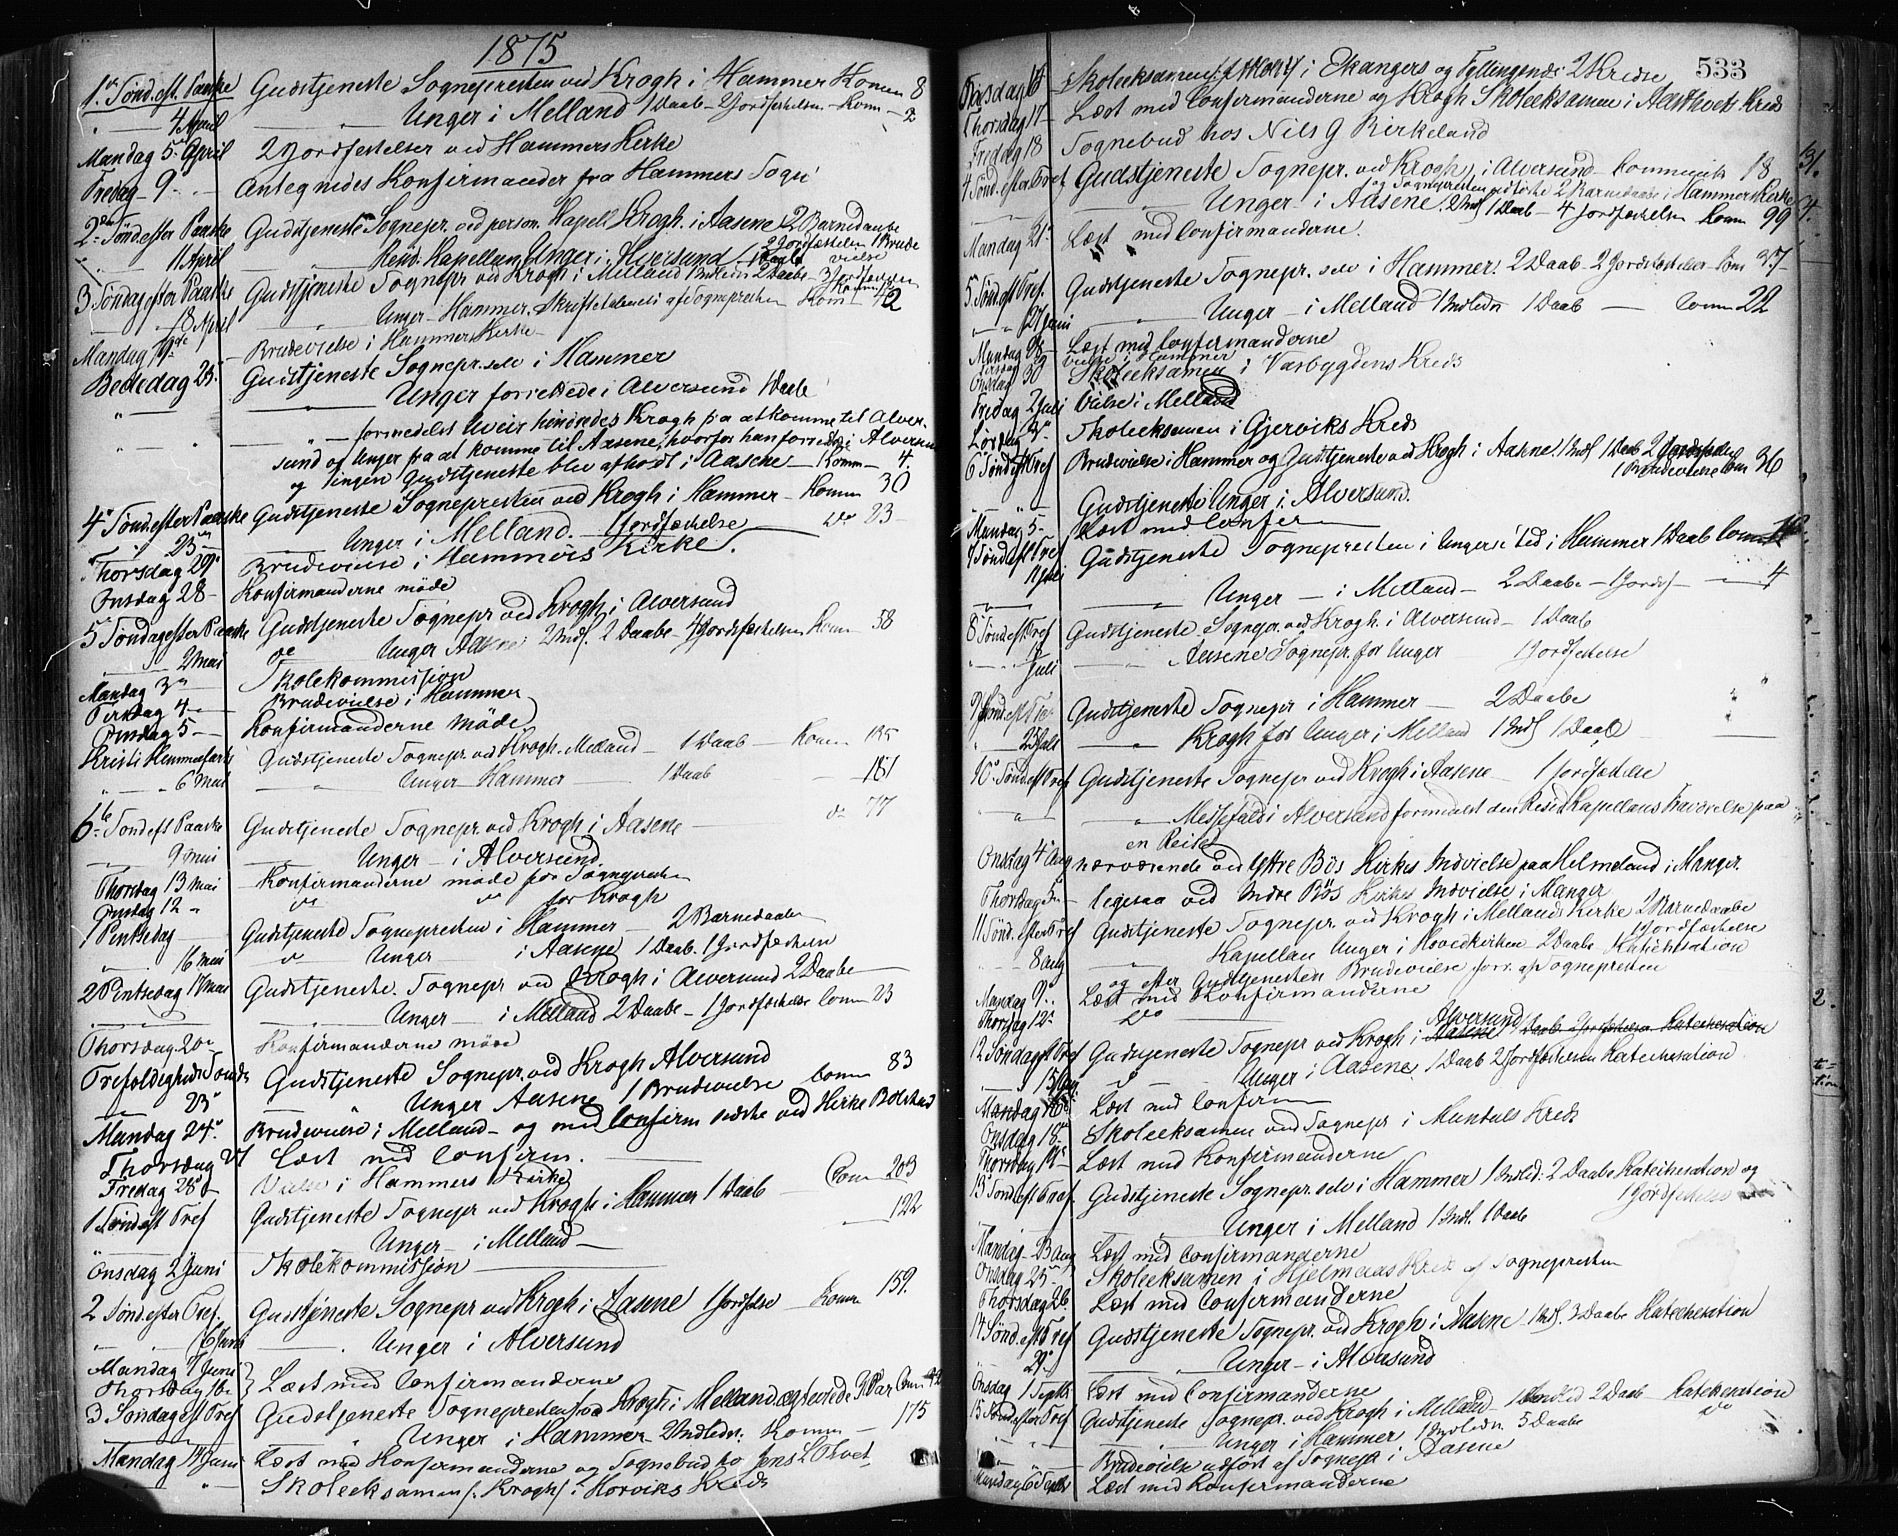 1875
1ste Sønd. eft. Paaske Gudstjeneste Sognepresten ved Krogh i Hammer Komm 8
" — 4 April — Unger i Melland 1 Daab – 2 Jordfæstelser – Kom — 2
Mandag 5 April 2 Jordfæstelser ved Hammers Kirke
Fredag 9 — Antegnedes Konfirmander fra Hammers Sogn
2den Sønd efter Paaske Gudstjeneste Sognepr. ved person. Kapell Krogh i Aasene 2 Barnedaabe
" 11 April Resid: Kapellan Unger i Alversund 1 Daab 2 Jordfæstelser 1 Brudevielse
3 Søndag efter Paaske Gudstjeneste Sognepr ved Krogh i Melland 1 Indledn 2 Daabe – 3 Jordfæstelser
— 18 April " Unger – Hammer. Skriftetale af Sognepresten Kom — 42
Mandag 19de Brudevielse i Hammers Kirke
Bededag 23 Gudstjeneste Sognepr. selv i Hammer
" — Unger forrettede i Alversund 1 Daab
" — formedelst Uveir hindredes Krogh fra at komme til Alver-
sund og Unger fra at komme til Aasene, hvorfor han forrettede i Alversund
og ingen Gudstjeneste blev afholdt i Aasene — Komm — 4.
4de Sønd efter Paaske Gudstjeneste Sognepresten ved Krogh i Hammer – Komm 30
25 — Unger i Melland. 1 Jordfæstelse — Do 23 –
Thorsdag 29 Brudevielse i Hammers Kirke.
Onsdag 28 – Konfirmanderne møde
5 Søndag efter Paaske Gudstjeneste Sognepr ved Krogh i Alversund
2 Mai — Unger Aasene 2 Indl. 2 Daabe – 4 Jordfæstelser Kom — 58
Mandag 3 — Skolekommission
Tirsdag 4 – Brudevielse i Hammer
Onsdag 5 – Konfirmanderne Møde
Kristi Himmelfarts Gudstjeneste Sognepr ved Krogh. Melland — 1 Daab — Komm 135
" — " 6 Mai " — Unger Hammer — 1 Daab — 181
6te Sønd eft Paaske Gudstjeneste Sognepr ved Krogh i Aasene — do 77
— 9 mai — Unger – i Alversund
Thorsdag 13 Mai – Konfirmanderne møde for Sognepresten
Onsdag 12 " do — do for Krogh
1 Pintsedag Gudstjeneste Sognepresten i Hammer — 2 Barnedaabe
16 mai do Unger i Aasene 1 Daab. 1 Jordfæstelse
2 Pintsedag 17 Mai Gudstjeneste. Sognepr ved Krogh i Alversund 2 Daabe
— Unger — i Melland 2 Daabe – 1 Jordfæstelse Comm 23
Thorsdag 20 Konfirmanderne møde
Trefoldigheds Sønd Gudstjeneste Sognepr. ved Krogh Alversund
23 " Unger Aasene 1 Brudevielse Comm 83
Mandag 24 Brudevielse i Melland – og med Confirm næste ved Kirke Bolstad
Thorsdag 27 Læst med Confirm.
Fredag 28 Vielse i Hammers Kirke
1 Sønd eft Tref Gudstjeneste Sognepr ved Krogh i Hammer 1 Daab — Com 203
Unger – i Melland — 122
Onsdag 2 Juni Skolekommission
2 Sønd. efter Tref. Gudstjeneste Sognepr ved Krogh i Aasene 1 Jordfæstelse – Komm 159.
6 Juni — Unger i Alversund
Mandag 7 Juni
Thorsdag 10 } Læst med Confirmanderne
3 Søndag eft Tref Gudstjeneste Sognepresten ved Krogh i Melland ægteviede Par Com 42
— Unger i Hammer – 2 Indledn: Komm — 175
Mandag 14 Juni Læst med Konfirmanderne og Sognebud Jens
" — " Skoleeksamen /: Krogh:/ i Horviks Kreds
533
Tirsdag 15 Skoleeksamen i Ekangers og Fyllingsnes 2 Kredse
Thorsdag 17 – Læst med Confirmanderne og Krogh Skoleeksamen i Kreds
Fredag 18 Sognebud hos Nils G Birkeland
4 Sønd. efter Tref Gudstjeneste Sognepr. ved Krogh i Alversund – Communik 18
og Sognepresten forrettede 2 Barnedaabe i Hammers Kirke
Unger – i Aasene. 2 Indl 1 Daab – 4 Jordfæstelser Komm 99
Mandag 21 Læst med Confirmanderne.
5 Sønd eft Tref. Gudstjeneste Sognepr. selv i Hammer. 2 Daab – 2 Jordfæstelser Com 37
" 27 Juni — Unger – i Melland 1 Indledn 1 Daab — Comm 22
Mandag 28 – Læst med Confirmanderne
Tirsdag 29 Vielse i Hammer
Onsdag 30 Skoleeksamen i Kreds
Fredag 2 Juli Vielse i Melland
Lørdag 3 Skoleeksamen i Gjerviks Kreds
6 Sønd eft Tref Brudevielse i Hammer og Gudstjeneste ved Krogh i Aasene. 1 Indl 1 Daab 2 Jordfæstelser
1 Brudevielse Com 36
Gudstjeneste Unger i Alversund.
Mandag 5 – Læst med Confirm
7 Sønd eft Tref Gudstjeneste Sognepresten i Ungers Sted i Hammer 1 Daab Comm
11 Juli — Unger — i Melland – 2 Daabe – 1 Jordf — 4
8 Sønd eft Tref Gudstjeneste Sognepr. ved Krogh i Alversund – 1 Daab
Juli — Aasene Sognepr. for Unger 1 Jordfæstelse
9 Sønd. eft Tref Gudstjeneste Sognepr i Hammer — 2 Daabe " "
" 25 Juli — Krogh for Unger i Melland 1 Indl 1 Daab —
10 Sønd eft Tref Gudstjeneste Sognepr ved Krogh i Aasene – 1 Jordfæstelse
" — Messefald i Alversund formedelst den Resid Kapellans Fraværelse paa
en Reise
Onsdag 4 Aug nærværende ved Ystre Bös Kirkes Indvielse paa Helmeland i Manger.
Thorsdag 5 – ligesaa ved Indre Bös Kirkes Indvielse i Manger
11 Sønd. efter Tref Gudstjeneste Sognepr. ved Krogh i Mellands Kirke 2 Barnedaabe
1 Jordfæstelse
8 Aug Kapellan Unger i Hovedkirken 2 Daabe Katechisation
og efter Gudstjenesten Brudevielse forr. af Sognepresten
Mandag 9 Læst med Konfirmanderne
Thorsdag 12 do
12 Søndag eft Tref Gudstjeneste Sognepr ved Krogh i Aasene Alversund Daab Jordfæstelse Katechisation
15 Aug do Unger i Aasene, 1 Daab 2 Jordfæstelser Katechisation
Mandag 16 Læst med Confirm
Onsdag 18 Skoleeksamen ved Sognepr i Mundals Kreds
Thorsdag 19 Læst med Konfirmanderne
13 Sønd eft Tref. Gudstjeneste Sognepr. selv i Hammer 1 Indled. 2 Daabe Katechisation og
1 Jordfæstelse
Unger i Melland 1 Indl. 1 Daab
Mandag 23 Aug Læst med Confirmanderne
Onsdag 25 Skoleeksamen i Hjelmaas Kreds af Sognepresten
Thorsdag 26 Læst med Confirmanderne
14 Sønd. eft Tref Gudstjeneste Sognepr. ved Krogh i Aasene – 1 Indl. 3 Daabe Katechisation
29 — Unger – i Alversund
Onsdag 1 Septb Læst med Confirmanderne
15 Sønd efter Tref Gudstjeneste Sognepr. ved Krogh i Melland – 1 Indled 2 Daab – Katechisation
" — Unger i Hammer 1 Indledn 5 Daabe do
" Brudevielse udført af Sognepr i Aasene
Mandag 6 Septbr Læst med Konfirmanderne